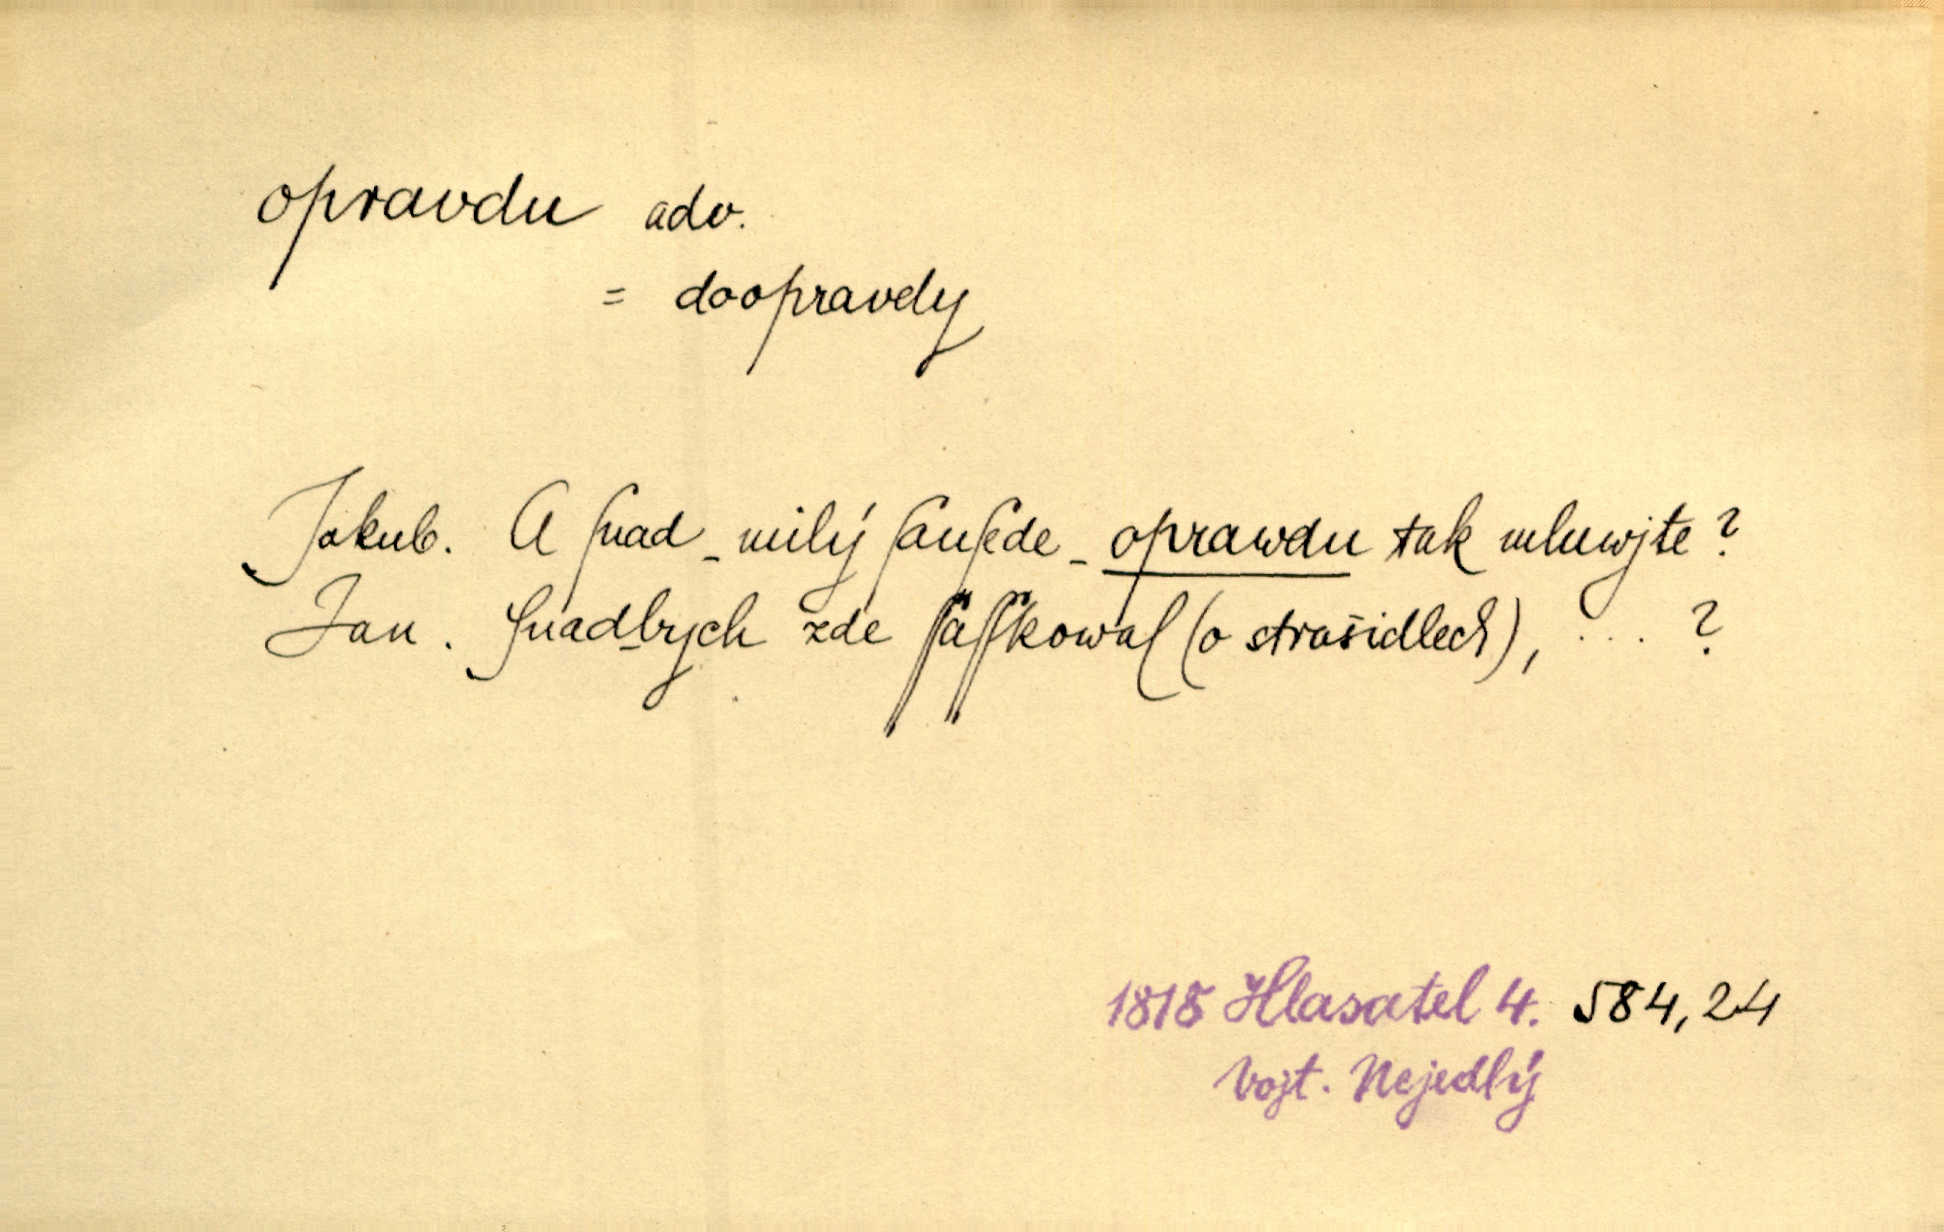 opravdu adv.
= doopravdy
Jakub. A ſnad – milý ſauſede – oprawdu tak mluwjte?
Jan. Snadbych zde ſſaſſkowal (o strašidlech), ... ?
1818 Hlasatel 4. 584,24
Vojt. Nejedlý